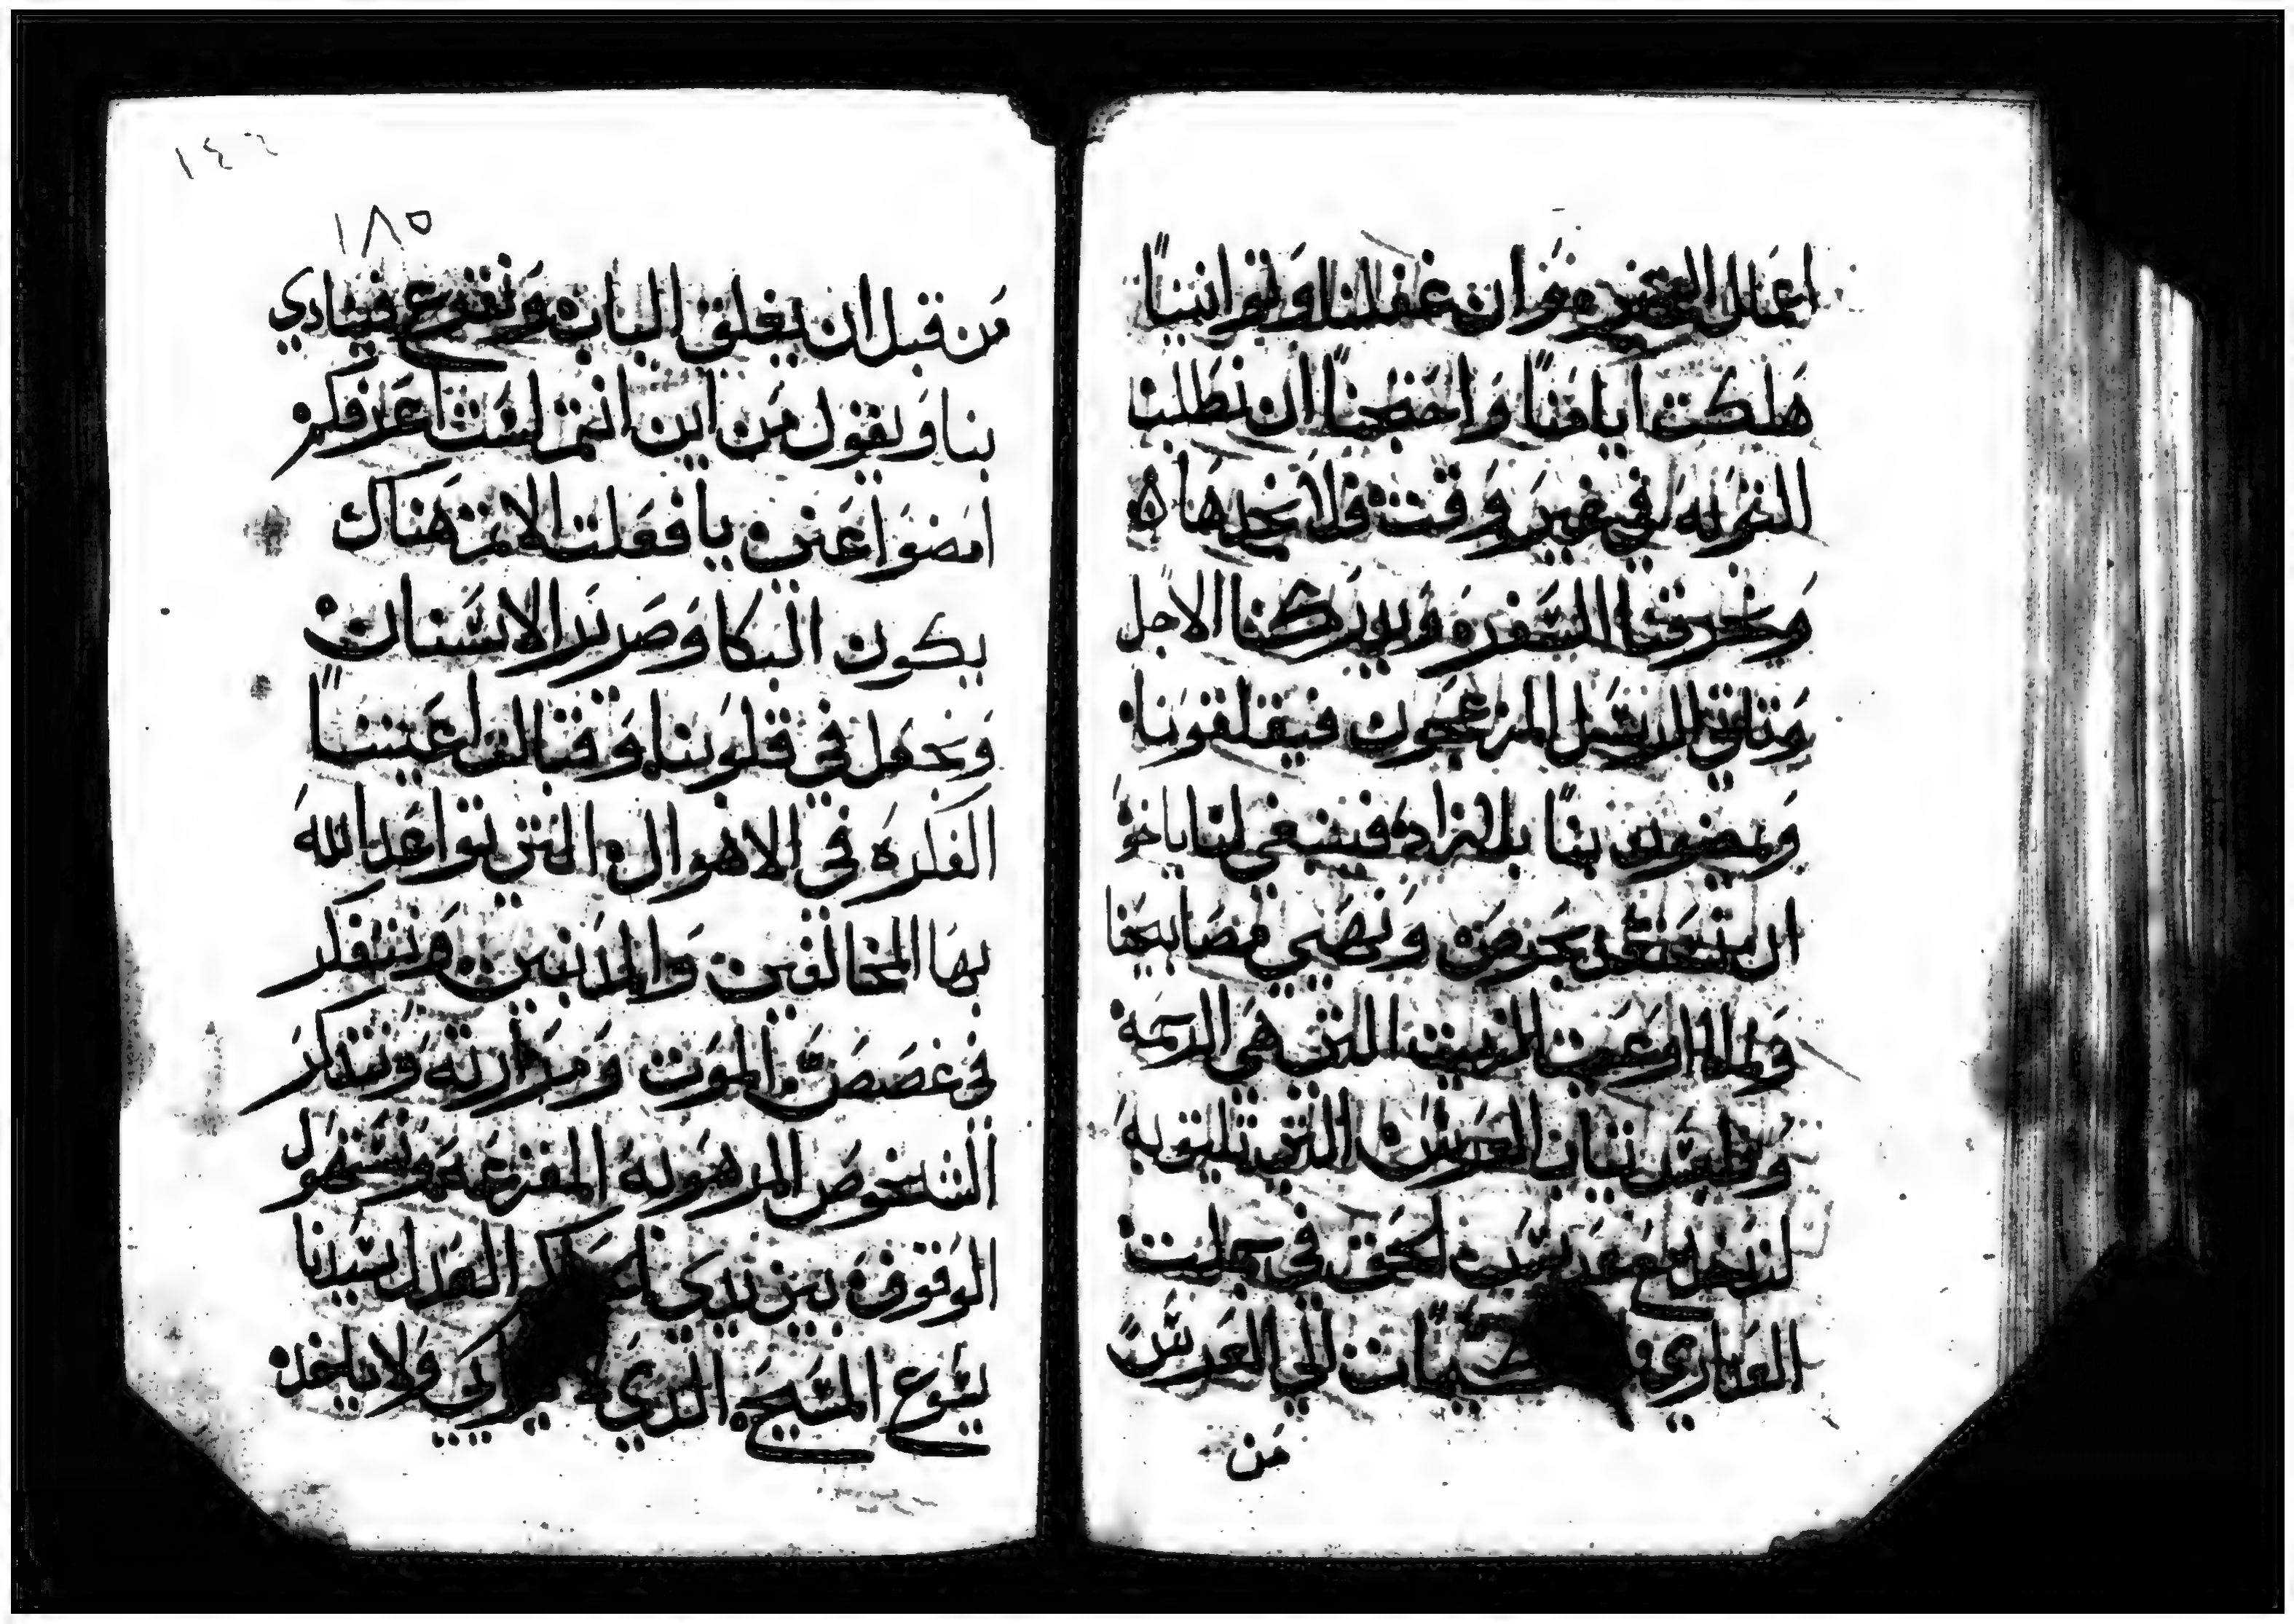 اعمال الخير وان غفلنا وتوانينا
هلكت ايامنا واحتجنا ان نطلب
في غير وقت فلا نجدها
السفره ويدركنا الاجل
وتاتي الرسل المزعجون فيقلقونا
ويمضون بنا بلا زاد فينبغي لنا يا اخوه
ان بحرص ونهيي مصابيحنا
الزيت التي هي الرحمه
ونلبس ثياب العرس التي
لندخل مع الحق في جملت
العداري الي العرس
من
١٤٤
١٨٥
من قبل ان يغلق الباب ونقرع فينادي
بنا ويقول من اين انتم لست اعرفكم
امضوا عني يا فعلت الاثم هناك
يكون البكا وصرير الاسنان
ونجعل في قلوبنا وقبالت اعيننا
الفكره في الاهوال التي تواعد الله
بها المخالفين والمذنبين ونتفكر
في غصص الموت ومرارته ونتذكر
الشخوص المرهوبه المفزعه
الوقوف بين يدي العدل سيدنا
يسوع المسيح الذي لا يرايي ولا ياخذ